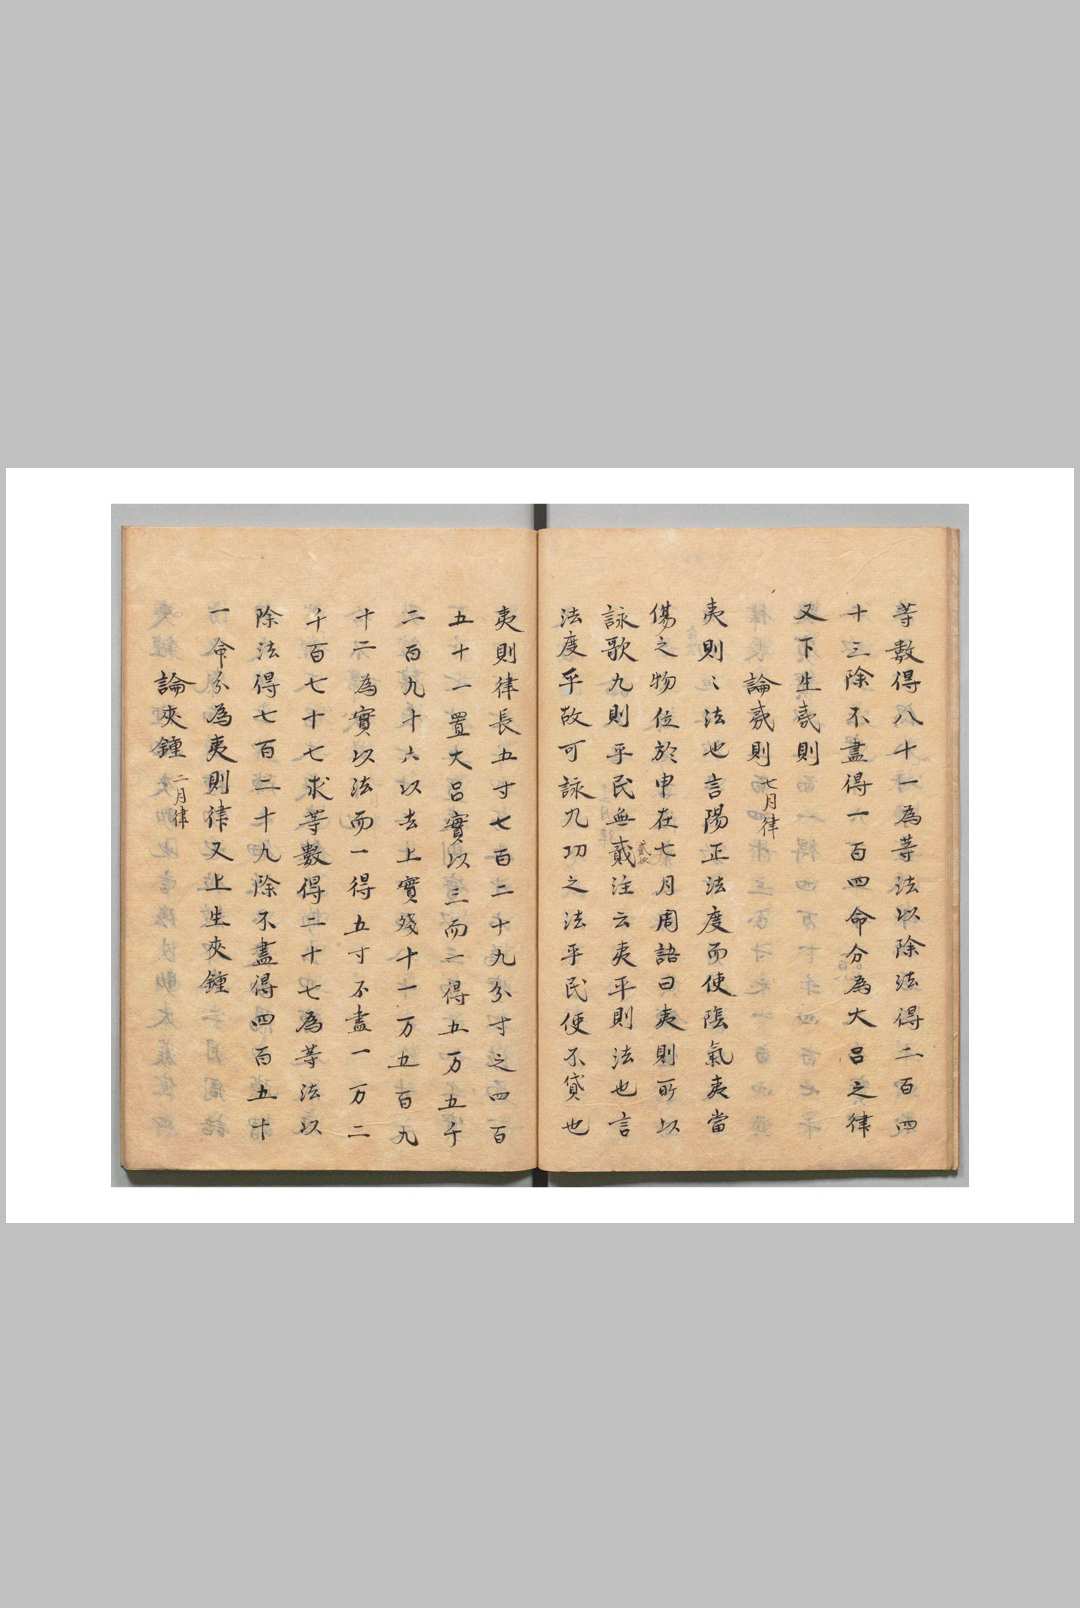 等數得八十一為等法以除法得二百四
十三除不盡得一百四命分為大呂之律
又下生夷則
論夷則 七月律
夷則〻法也言陽正法度而使陰氣夷當
傷之物位於申在七月周語曰夷則所以
詠歌九則乎民無貳注云夷平則法也言
法度平故可詠九功之法平民使不貸也
夷則律長五寸七百二十九分寸之四百
五十一置大呂實以三而二得五万五千
二百九十六以去上實殘十一万五百九
十二為實以法而一得五寸不盡一万二
千百七十七求等數得二十七為等法以
除法得七百二十九除不盡得四百五十
一命分為夷則律又上生夾鍾
論夾鍾 二月律